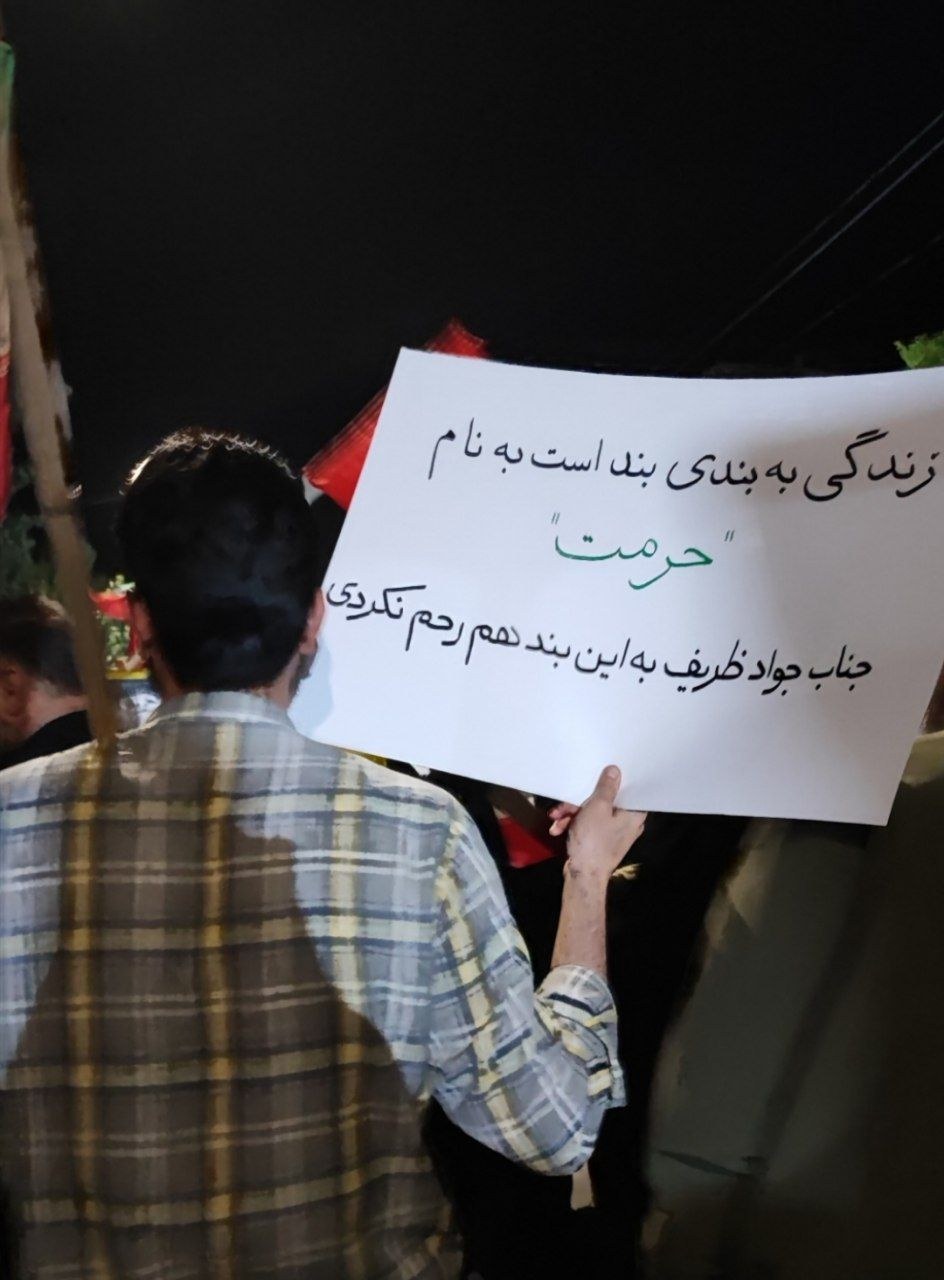 زندگی به بندی بند است به نام
"حرمت"
جناب جواد ظریف به این بند هم رحم نکردی